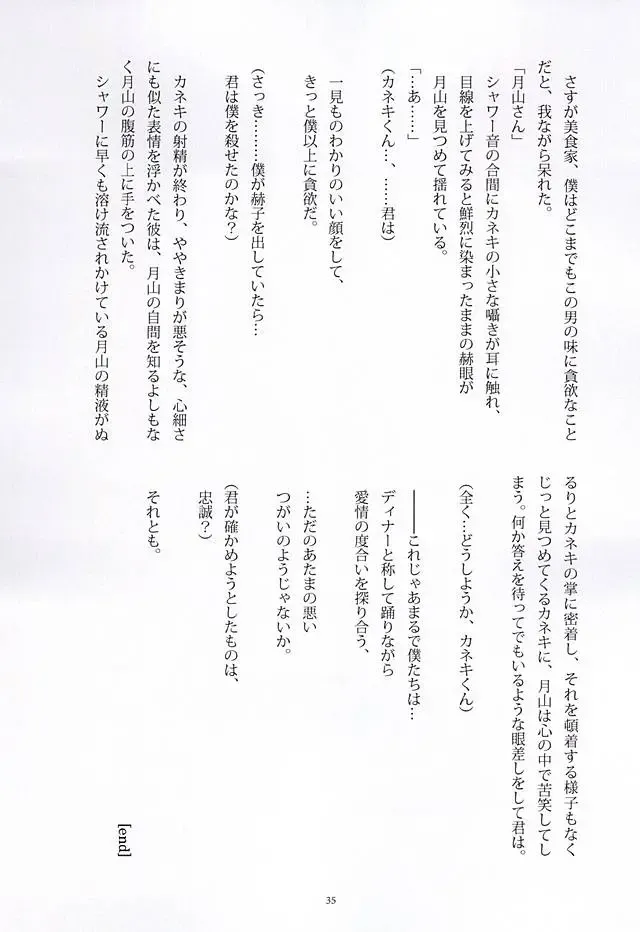 さすが美食家、僕はどこまでもこの男の味に貪欲なこと
だと、我ながら呆れた。
「月山さん」
シャワー音の合間にカネキの小さな囁きが耳に触れ、
目線を上げてみると鮮烈に染まったままの赫眼が
月山を見つめて揺れている。
「…あ……」
(カネキくん…、……君は)
一見ものわかりのいい顔をして、
きっと僕以上に貪欲だ。
(さっき………僕が赫子を出していたら…
君は僕を殺せたのかな?)
カネキの射精が終わり、ややきまりが悪そうな、心細さ
にも似た表情を浮かべた彼は、月山の自問を知るよしもな
く月山の腹筋の上に手をついた。
シャワーに早くも溶け流されかけている月山の精液がぬ
るりとカネキの掌に密着し、それを頓着する様子もなく
じっと見つめてくるカネキに、月山は心の中で苦笑してし
まう。何か答えを待ってでもいるような眼差しをして君は。
(全く…どうしようか、カネキくん)
――これじゃあまるで僕たちは…
ディナーと称して踊りながら
愛情の度合いを探り合う、
…ただのあたまの悪い
つがいのようじゃないか。
(君が確かめようとしたものは、
忠誠?)
それとも。
[end]
35